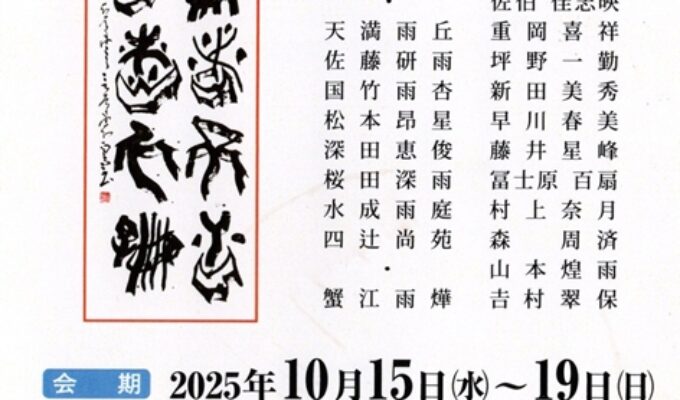 天満雨丘
佐藤研雨
国竹雨杏
松本昂星
深田恵俊
桜田深雨
水成雨庭
四辻尚苑
・
蟹江雨燁
重岡喜祥
坪野一勤
新田美秀
早川春美
藤井星峰
冨士原百扇
村上奈月
森周済
山本煌雨
吉村翠保
会期
2025年10月15日(水)～19日(日)